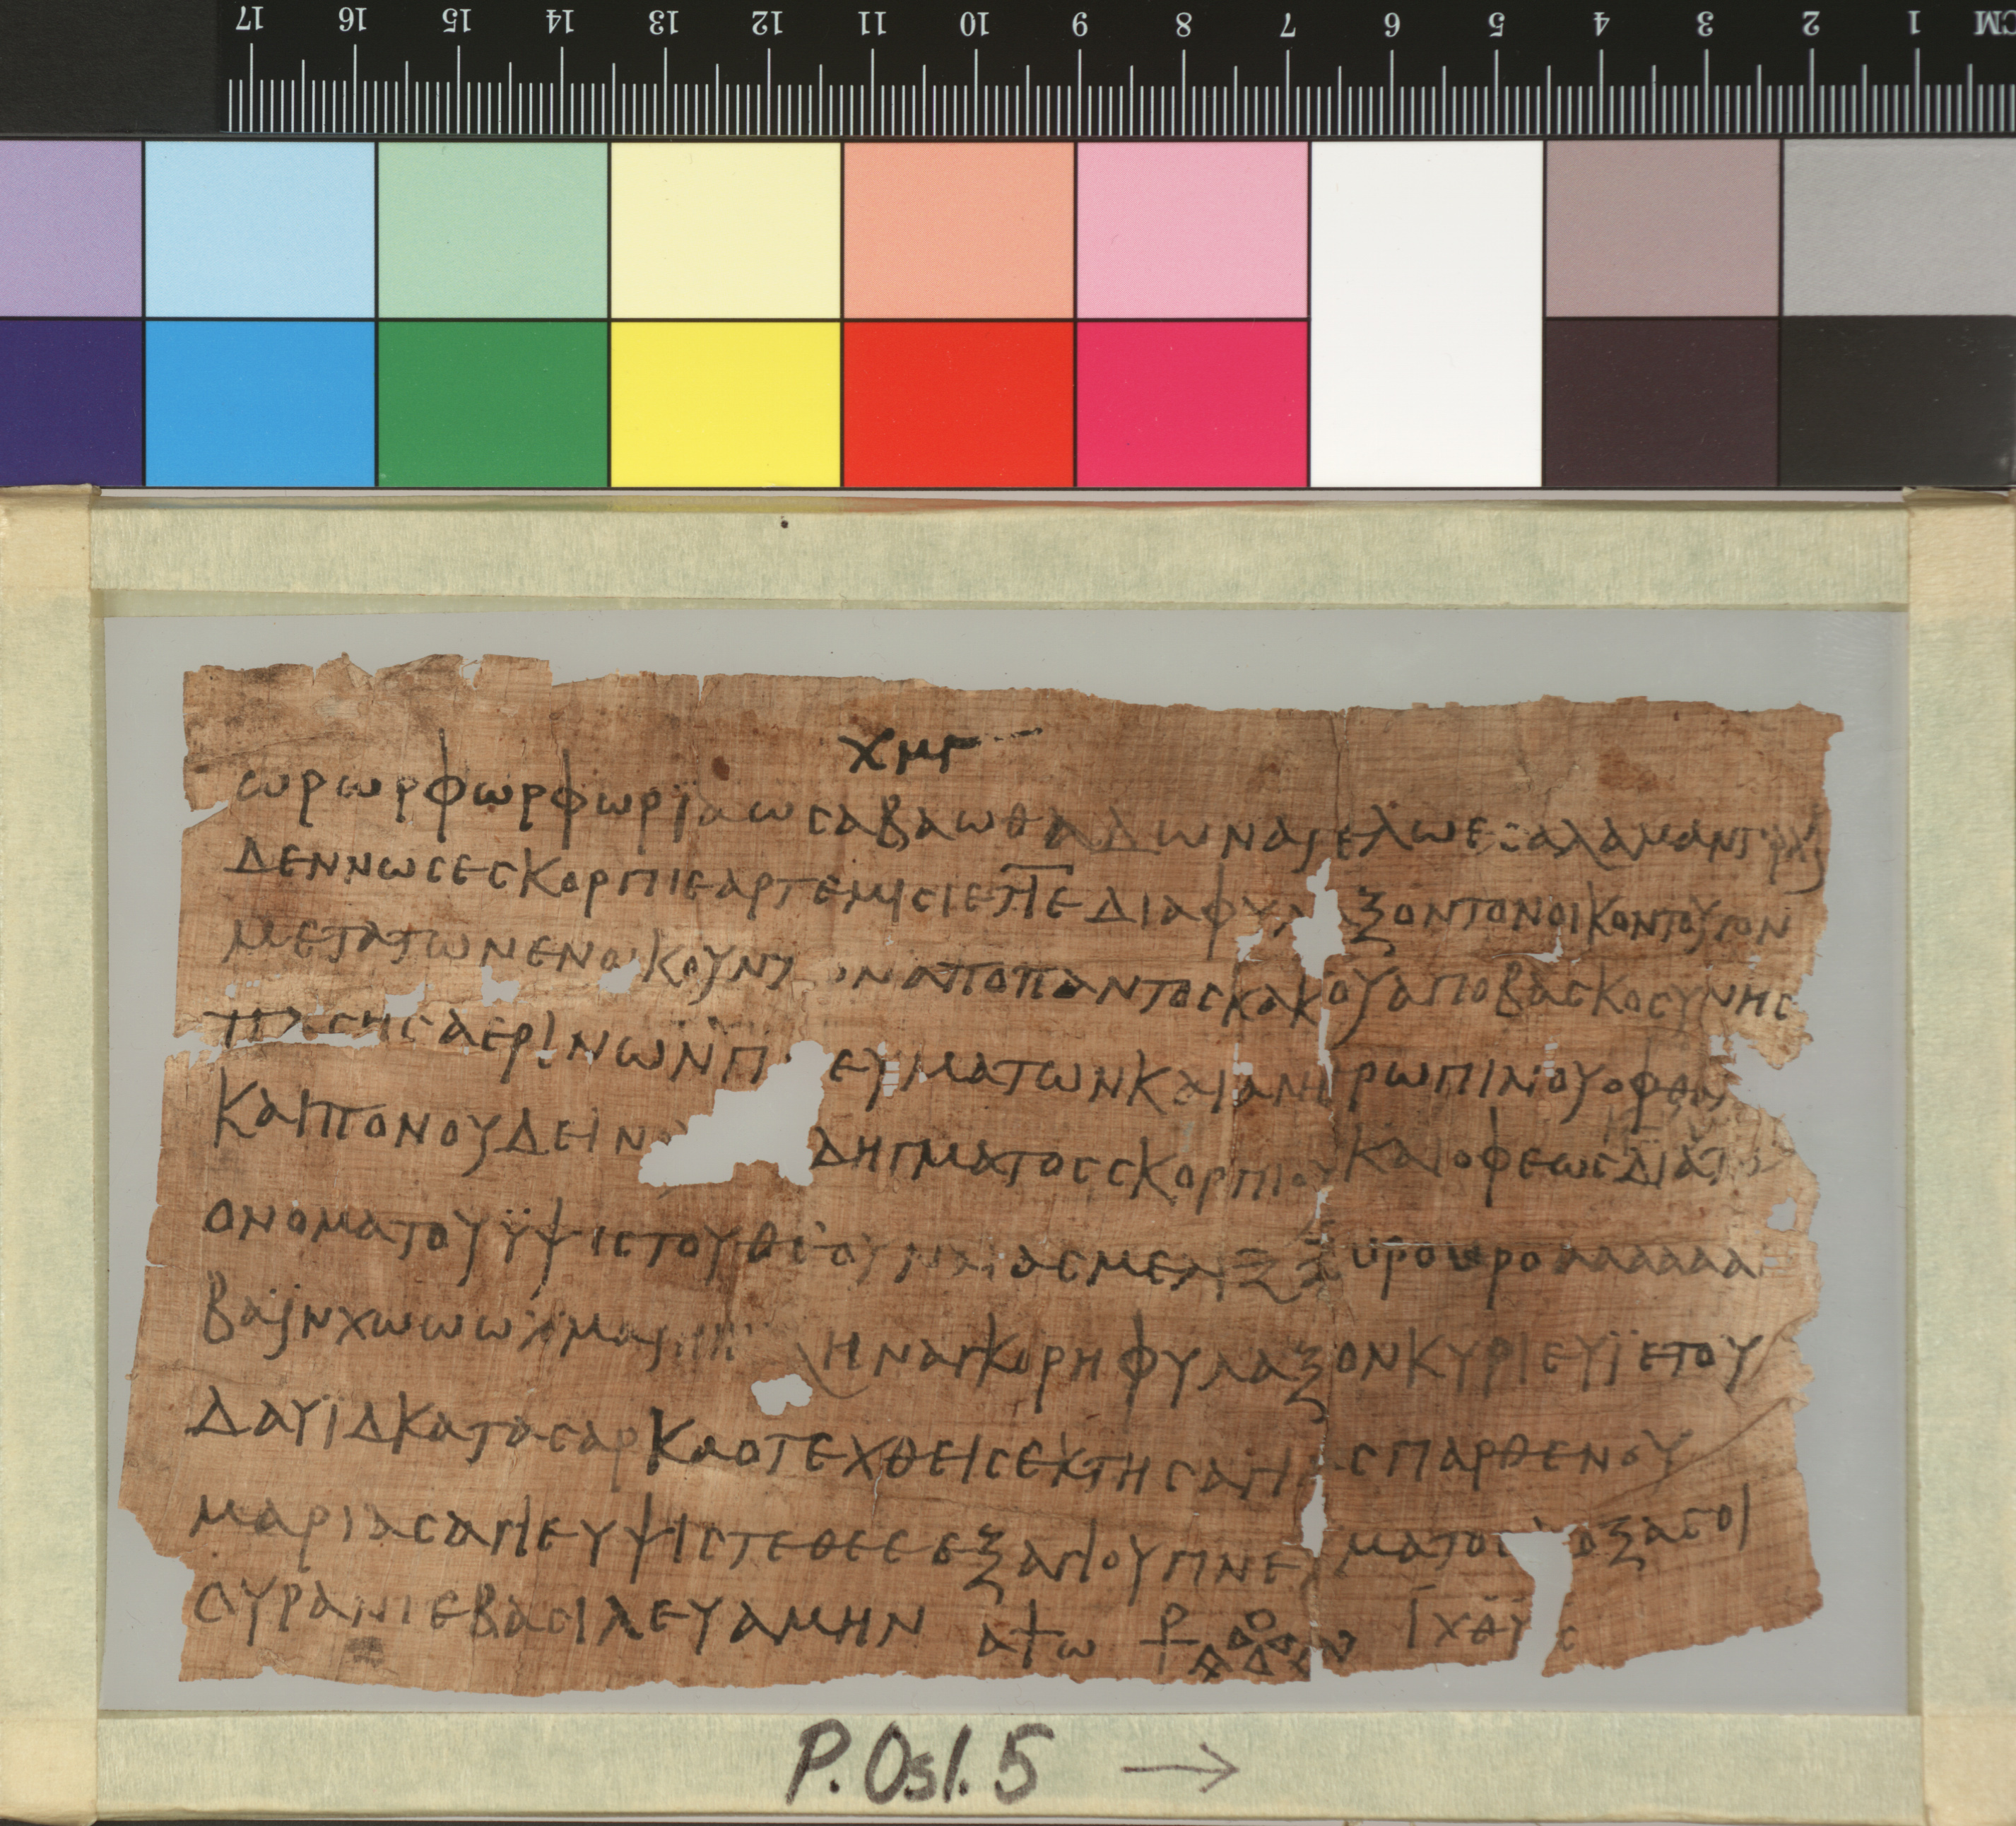 17 16 15 14 13 12 11 10 9 8 7 6 5 4 3 2 1 CM
χμγ
ωρωρφωρφωρϊαωσαβαωθαδωναιελωε σαλαμαν
δεννωσεσκορπιεαρτεμισιετ̅ι̅εδιαφυλ ξοντονοικοντουτον
μετατωνενοικουντ ωναποπαντοσκακουαποβασκοσυνησ
πασησαερινωνπ ευματωνκαιαν ρωπινουοφθαλ
καιπονουδεινο δηγματοσσκορπιουκαιοφεωσδιατο
ονοματουϋψιστουθεου ασμελ ξ ξ ϋρουρο αααααα
βαϊνχωωωχ μαρι ηναγκορηφυλαξονκυριευϊετου
δαυϊδκατασαρκαοτεχθεισεκτησαγι σπαρθενου
μαριασαγιευψιστεθεεεξαγιουπνε ματοσ οξασοι
ουρανιεβασιλευαμην α†ω ⳨ ϊχθϋσ
P.Osl.5 →